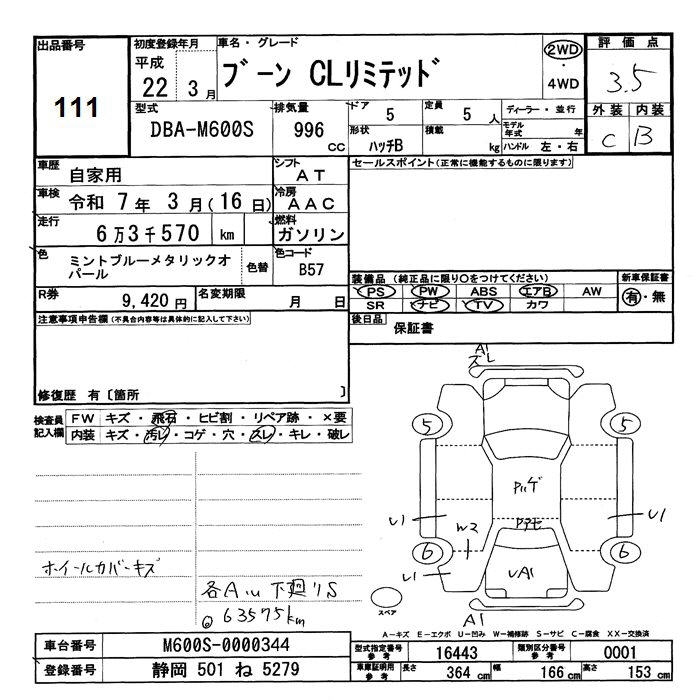 出品番号
111
初度登録年月
平成
22 3月
車名・グレード
ブーン CLリミテッド
2WD
・
4WD
評価点
3.5
外装 内装
C B
型式
DBA-M600S
排気量
996
CC
ドア 5
定員 5 人
ディーラー・並行
形状 ハッチB
積載 kg
モデル年式 年
ハンドル 左・右
車歴 自家用
シフト AT
車検 令和 7年 3月(16日)
冷房 AAC
走行 6万3千570 km
燃料 ガソリン
色 ミントブルーメタリックオパール
色替
色コード B57
R券 9,420円
名変期限 月 日
セールスポイント(正常に機能するものに限ります)
装備品(純正品に限り○をつけてください)
新車保証書
PS PW ABS エアB AW
有・無
SR ナビ TV カワ
後日品 保証書
注意事項申告欄(不具合内容等は具体的に記入して下さい)
修復歴 有〔箇所 〕
検査員記入欄
FW キズ・飛石・ヒビ割・リペア跡・×要
内装 キズ・汚レ・コゲ・穴・スレ・キレ・破レ
ホイールカバーキズ
各A,U 下廻りS
◎ 63575km
A1
スレ
5 5
U1 U1
W2
6 6
U1
UA1
A1
スペア
A-キズ E-エクボ U-凹み W-補修跡 S-サビ C-腐食 XX-交換済
車台番号 M600S-0000344
登録番号 静岡 501 ね 5279
型式指定番号 参考 16443
類別区分番号 参考 0001
車庫証明用 参考 長さ 364 cm 幅 166 cm 高さ 153 cm